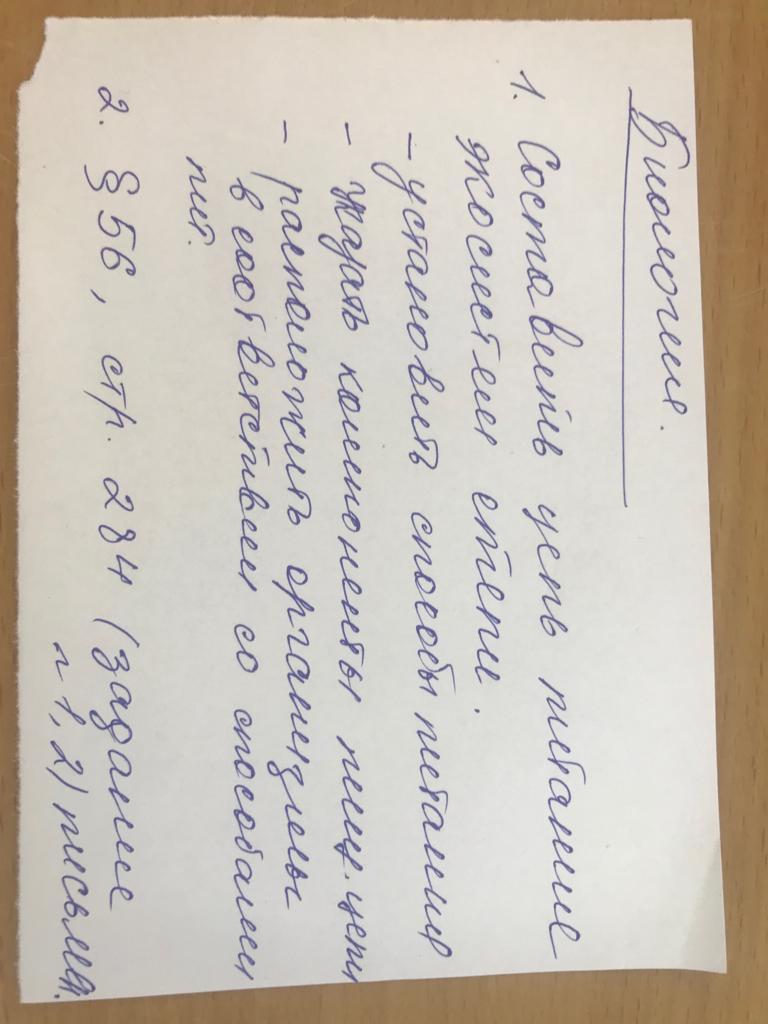 Биология.
1. Составить цепь питания
экосистем степи.
- установить способы питания
- указать компоненты пищ. цепи
- расположить организмы
в соответствии со способами
пит.
2. § 56, стр. 284 (задание
n 1, 2) письмен.